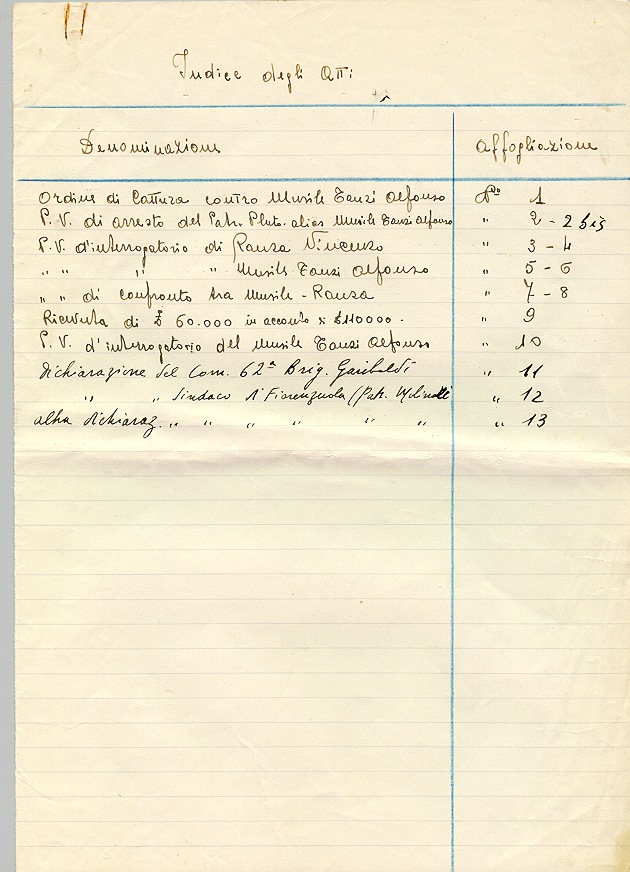 Indice degli Atti
Denominazione Affogliazione
Ordine di Cattura contro Musile Tanzi Alfonso 1
P. V. di arresto del Patr. Pluto. alias Musile Tanzi Alfonso " 2 - 2 bis
P. V. d'interrogatorio di Ranza Vincenzo " 3 - 4
" " " " Musile Tanzi Alfonso " 5 - 6
" " di confronto tra Musile - Ranza " 7 - 8
Ricevuta di £ 60.000 in acconto £ 110000. " 9
P. V. d'interrogatorio del Musile Tanzi Alfonso " 10
dichiarazione del Com. 62ª Brig. Garibaldi " 11
" " Sindaco di Fiorenzuola (Patr. " 12
altra dichiaraz. " " " " " " " 13